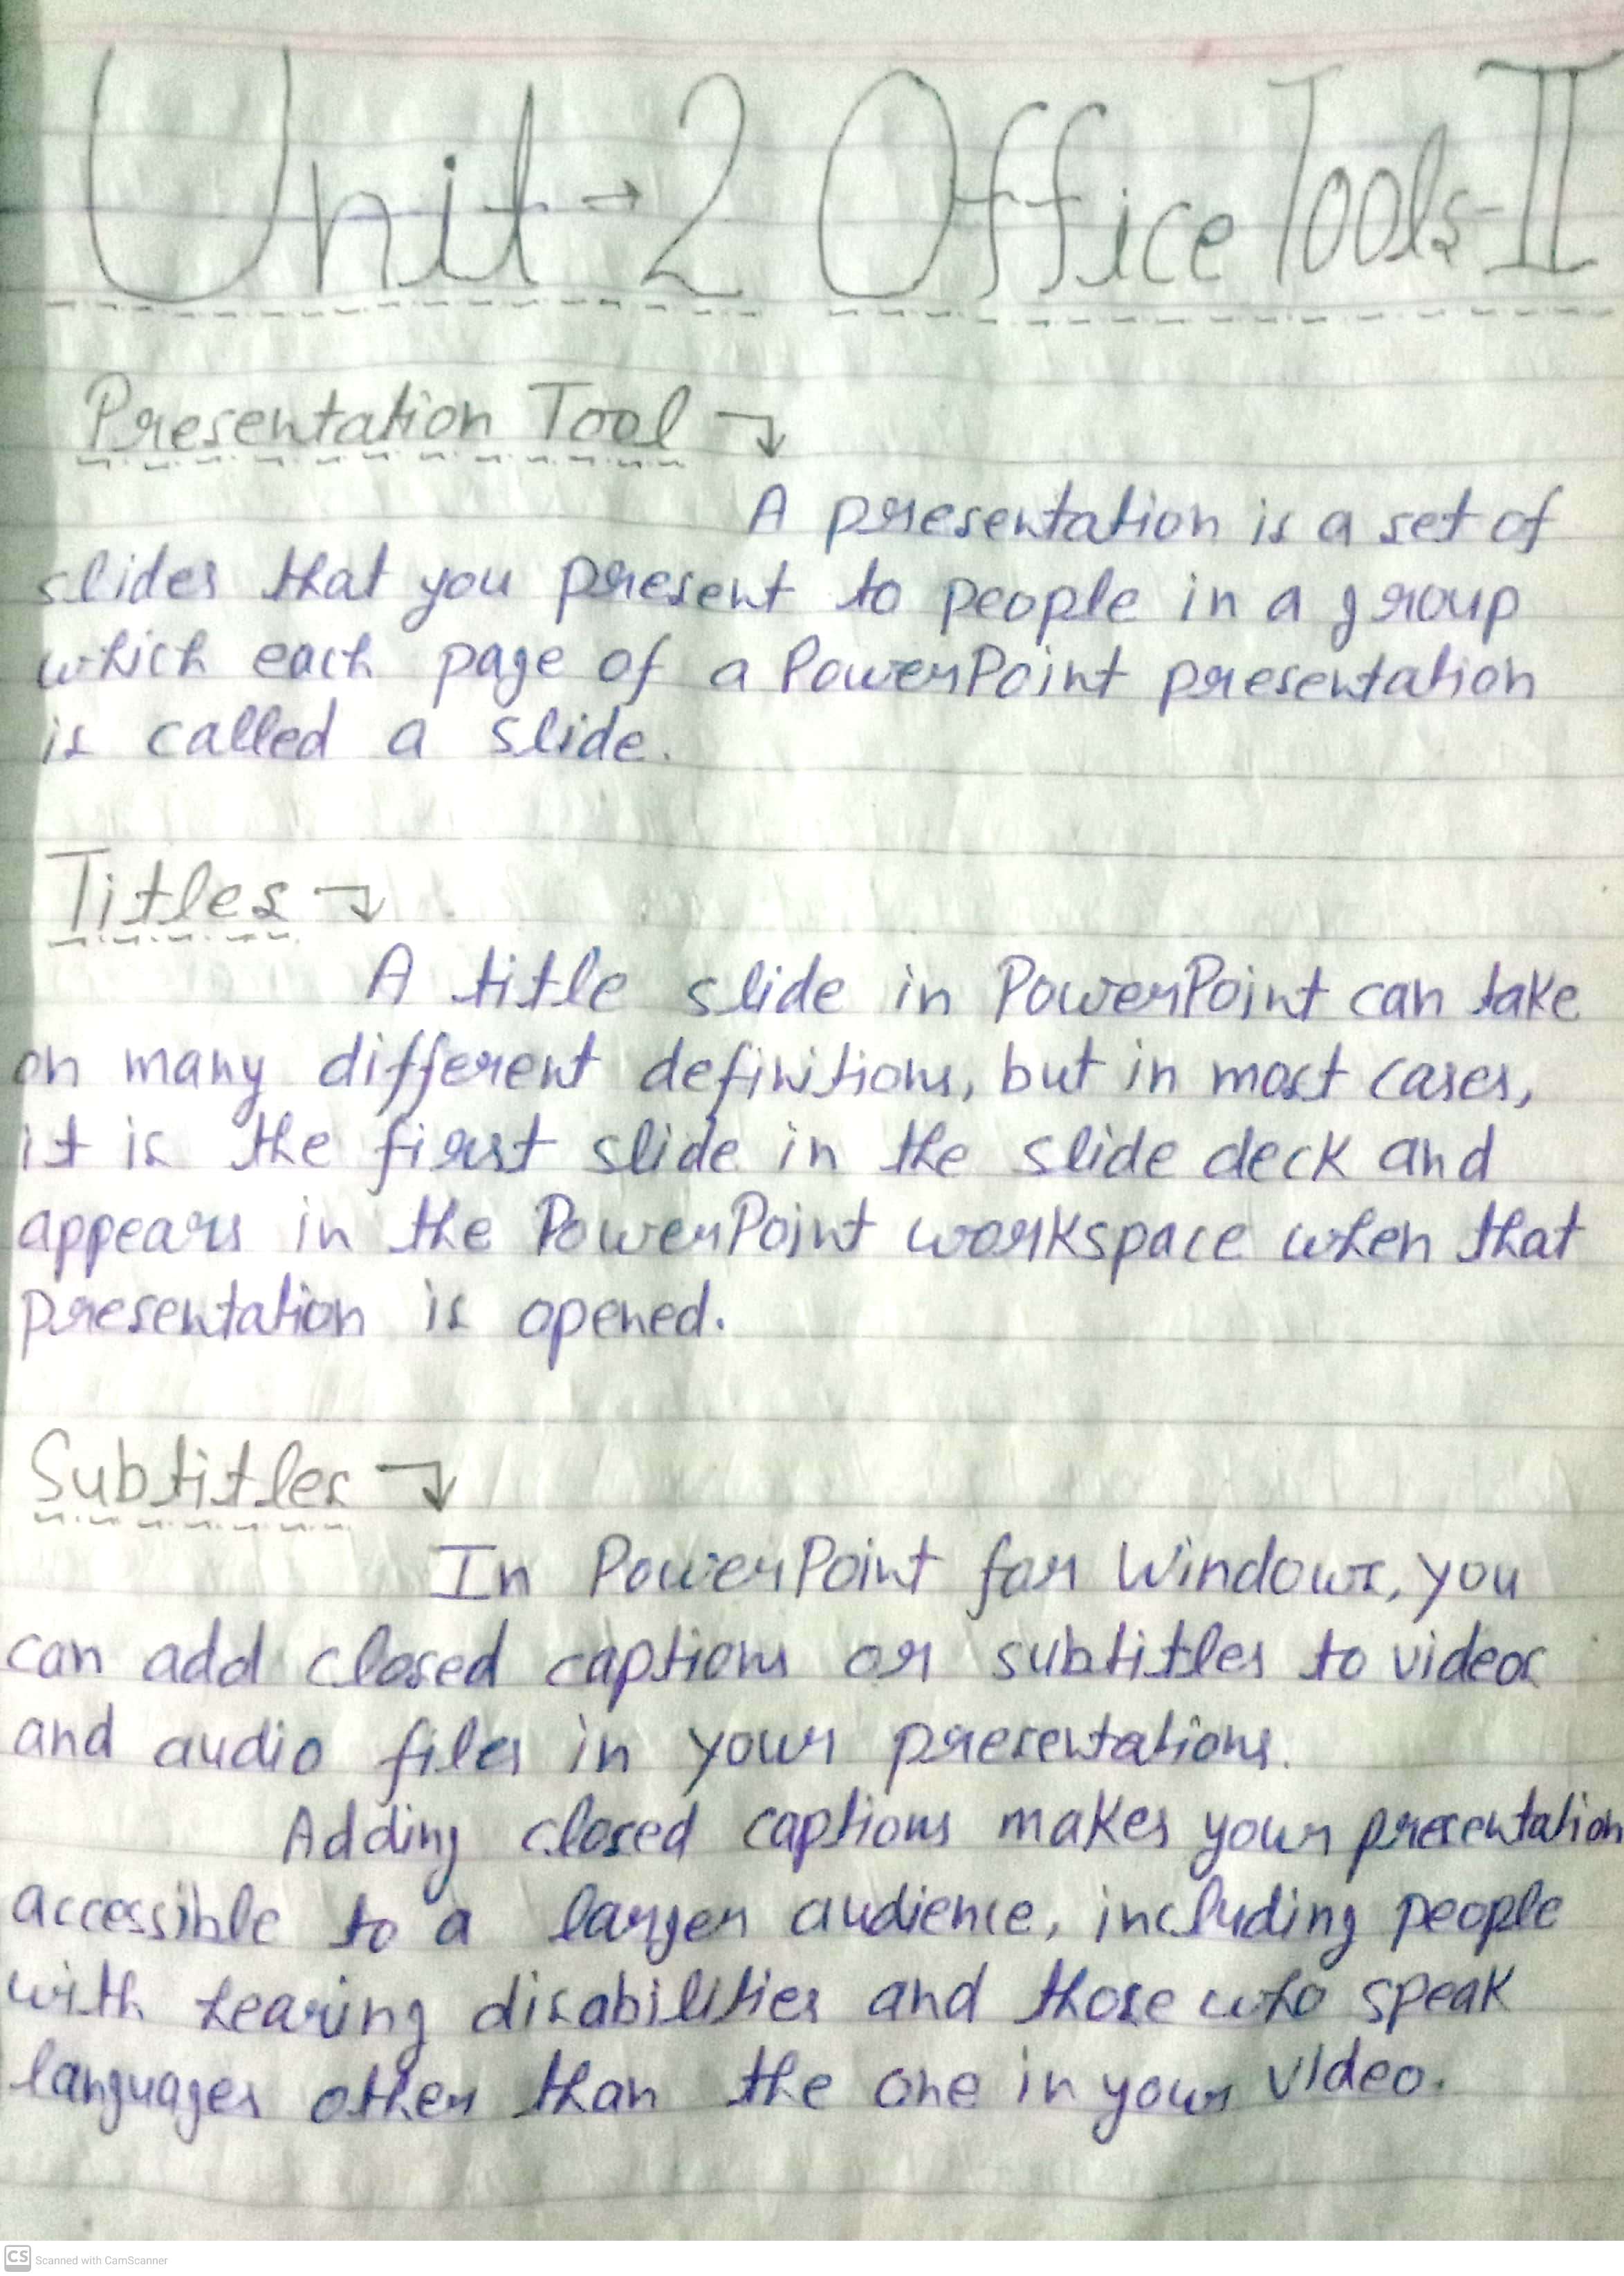 Unit→2 Office Tools-II
Presentation Tool ↴
A presentation is a set of
slides that you present to people in a group
which each page of a PowerPoint presentation
is called a slide.
Titles ↴
A title slide in PowerPoint can take
on many different definitions, but in most cases,
it is the first slide in the slide deck and
appears in the PowerPoint workspace when that
presentation is opened.
Subtitles ↴
In PowerPoint for Windows, you
can add closed captions or subtitles to videos
and audio files in your presentations.
Adding closed captions makes your presentation
accessible to a larger audience, including people
with hearing disabilities and those who speak
languages other than the one in your video.
CS Scanned with CamScanner